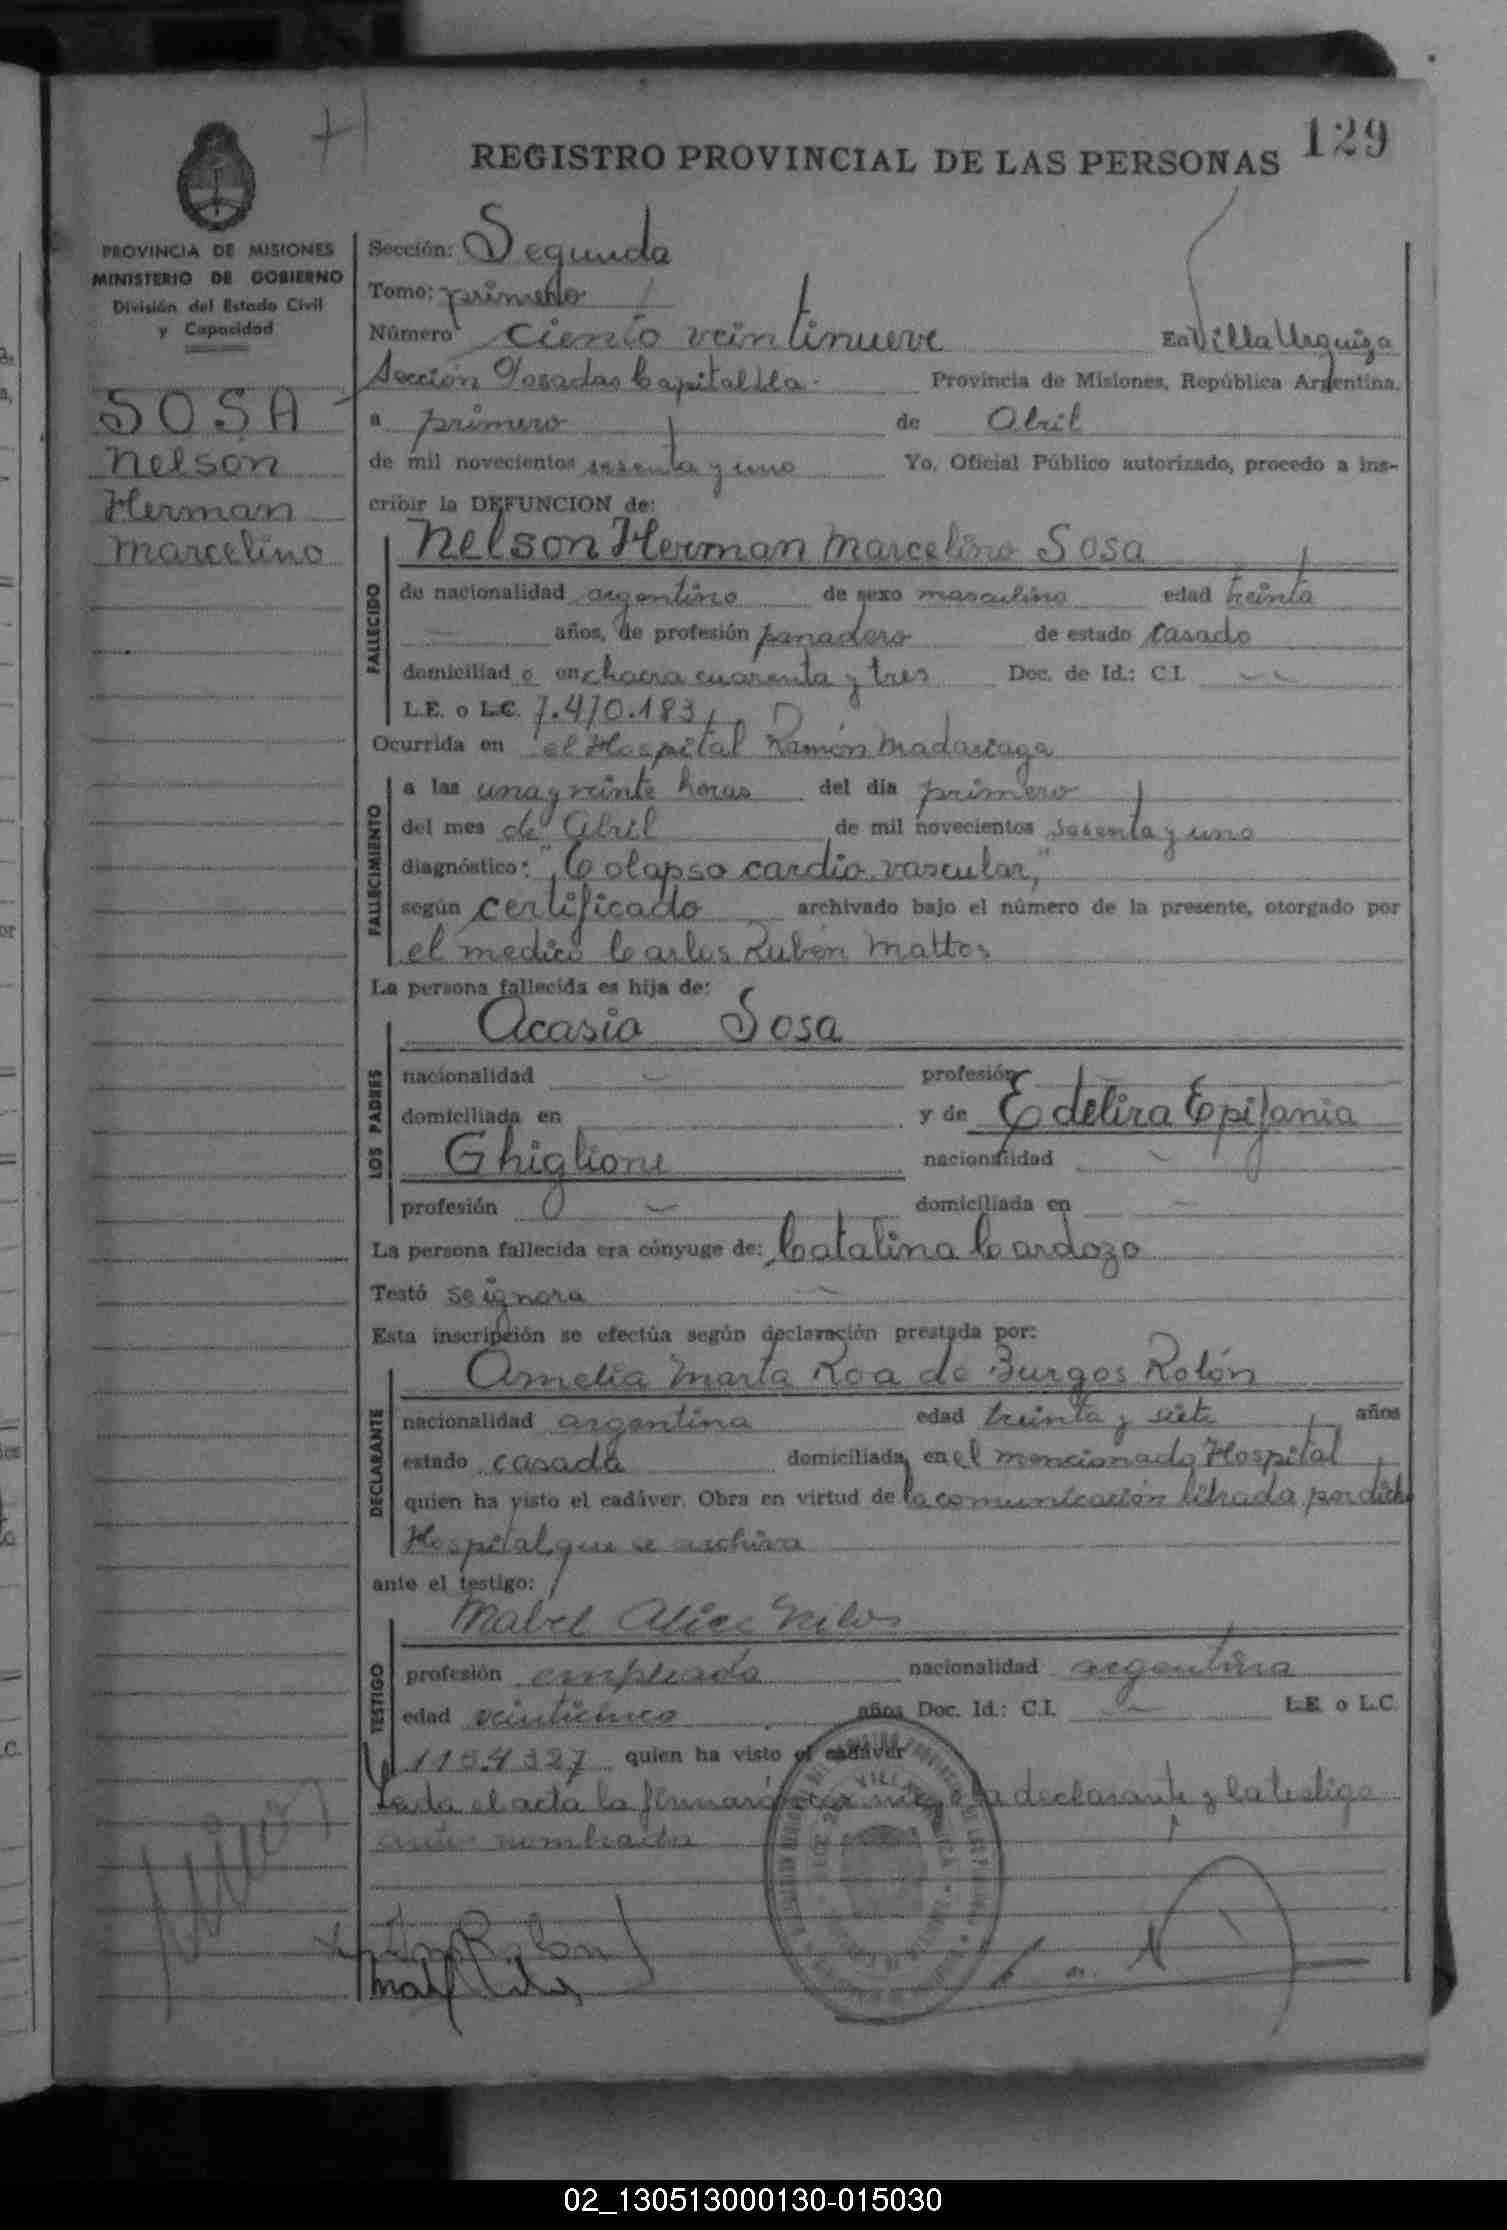 129
REGISTRO PROVINCIAL DE LAS PERSONAS
PROVINCIA DE MISIONES
MINISTERIO DE GOBIERNO
División del Estado Civil
y Capacidad
SOSA
Nelson
Herman
Marcelino
Sección: Segunda
Tomo: primero
Número ciento veintinueve En Villa Urquiza
Sección Posadas Capital IIa. Provincia de Misiones, República Argentina.
a primero de Abril
de mil novecientos sesenta y uno Yo, Oficial Público autorizado, procedo a ins-
cribir la DEFUNCION de:
FALLECIDO
Nelson Herman Marcelino Sosa
de nacionalidad argentino de sexo masculino edad treinta
años, de profesión panadero de estado casado
domiciliad o en chacra cuarenta y tres Doc. de Id.: C.I.
L.E. o L.C. 7.470.183
Ocurrida en el Hospital Ramón Madariaga
FALLECIMIENTO
a las una y veinte horas del día primero
del mes de Abril de mil novecientos sesenta y uno
diagnóstico: "Colapso cardio vascular,"
según certificado archivado bajo el número de la presente, otorgado por
el medico Carlos Rubén Mattos
La persona fallecida es hija de:
LOS PADRES
Acasio Sosa
nacionalidad profesión
domiciliada en y de Edelira Epifania
Ghiglione nacionalidad
profesión domiciliada en
La persona fallecida era cónyuge de: Catalina Cardozo
Testó se ignora
Esta inscripción se efectúa según declaración prestada por:
DECLARANTE
Amelia Marta Roa de Burgos Rolón
nacionalidad argentina edad treinta y siete años
estado casada domiciliada en el mencionado Hospital
quien ha visto el cadáver. Obra en virtud de la comunicación librada por dicho
Hospital, que se archiva
ante el testigo:
TESTIGO
Mabel Alice
profesión empleada nacionalidad argentina
edad veinticinco años Doc. Id.: C.I. L.E. o L.C.
quien ha visto el cadáver
Leida el acta la firmaron la declarante y la testigo
antes nombrada
Rolon
02_130513000130-015030